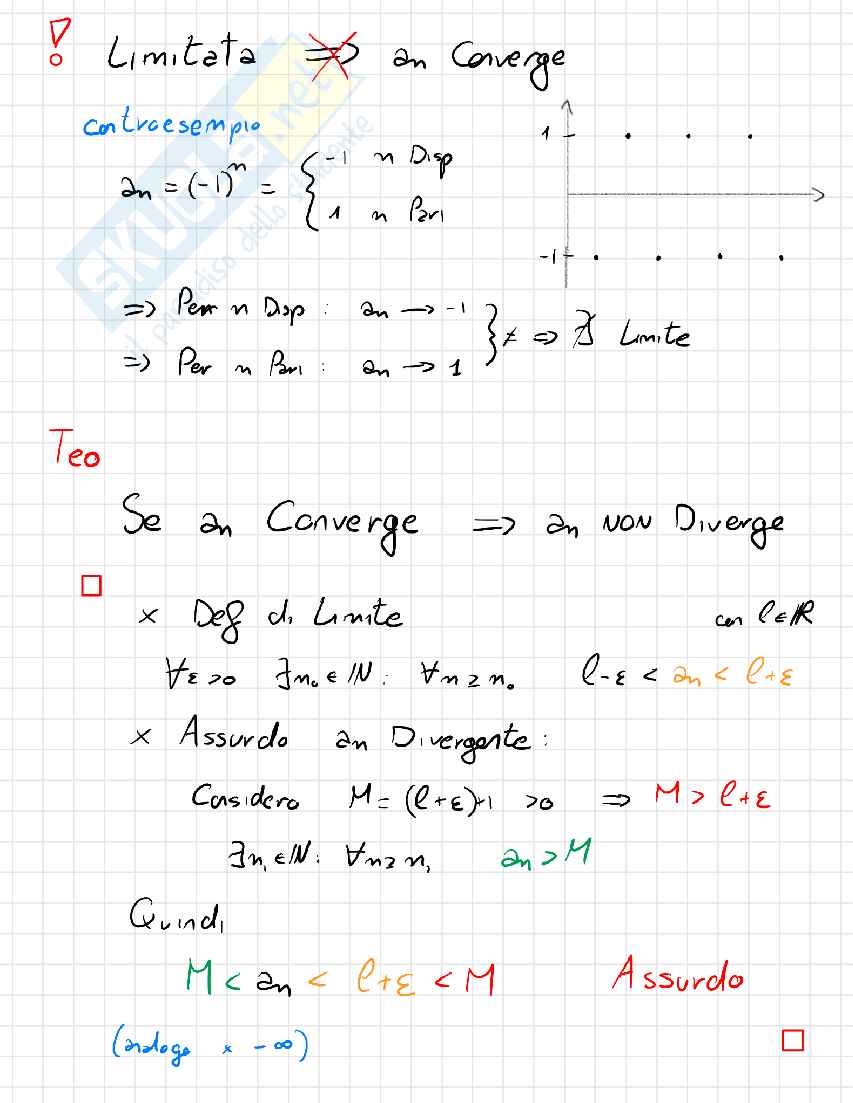 ! Limitata ⇏ an Converge
controesempio
an = (-1)^n = { -1 n Disp
1 n Pari
1
-1
=> Per n Disp : an → -1
=> Per n Pari : an → 1 } ≠ => ∄ Limite
Teo
Se an Converge => an NON Diverge
□
× Def di Limite con l∈ℝ
∀ε>0 ∃n₀∈ℕ: ∀n≥n₀ l-ε < an < l+ε
× Assurdo an Divergente :
Considero M = (l+ε)+1 >0 => M > l+ε
∃n₁∈ℕ: ∀n≥n₁ an > M
Quindi
M < an < l+ε < M Assurdo
(analogo × -∞) □
SKUOLA.net
il paradiso dello studente